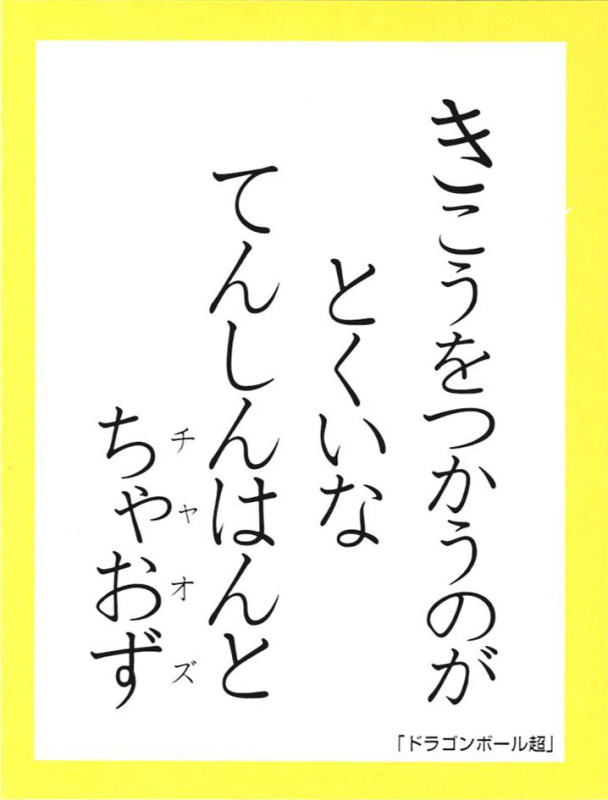 きこうをつかうのが
とくいな
てんしんはんと
ちゃおず
チャオズ
「ドラゴンボール超」